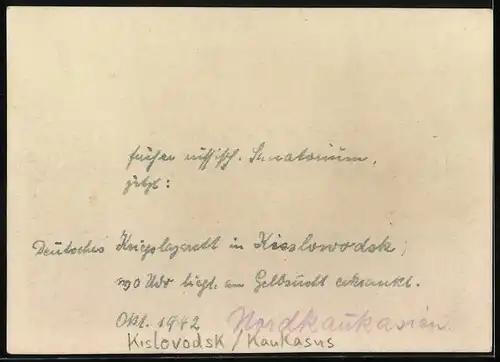 früher russisch. Sanatorium,
jetzt:
Deutsches Kriegslazarett in Kisslowodsk,
wo Udo liegt, an Gelbsucht erkrankt.
Okt. 1942 Nordkaukasien
Kislovodsk / Kaukasus